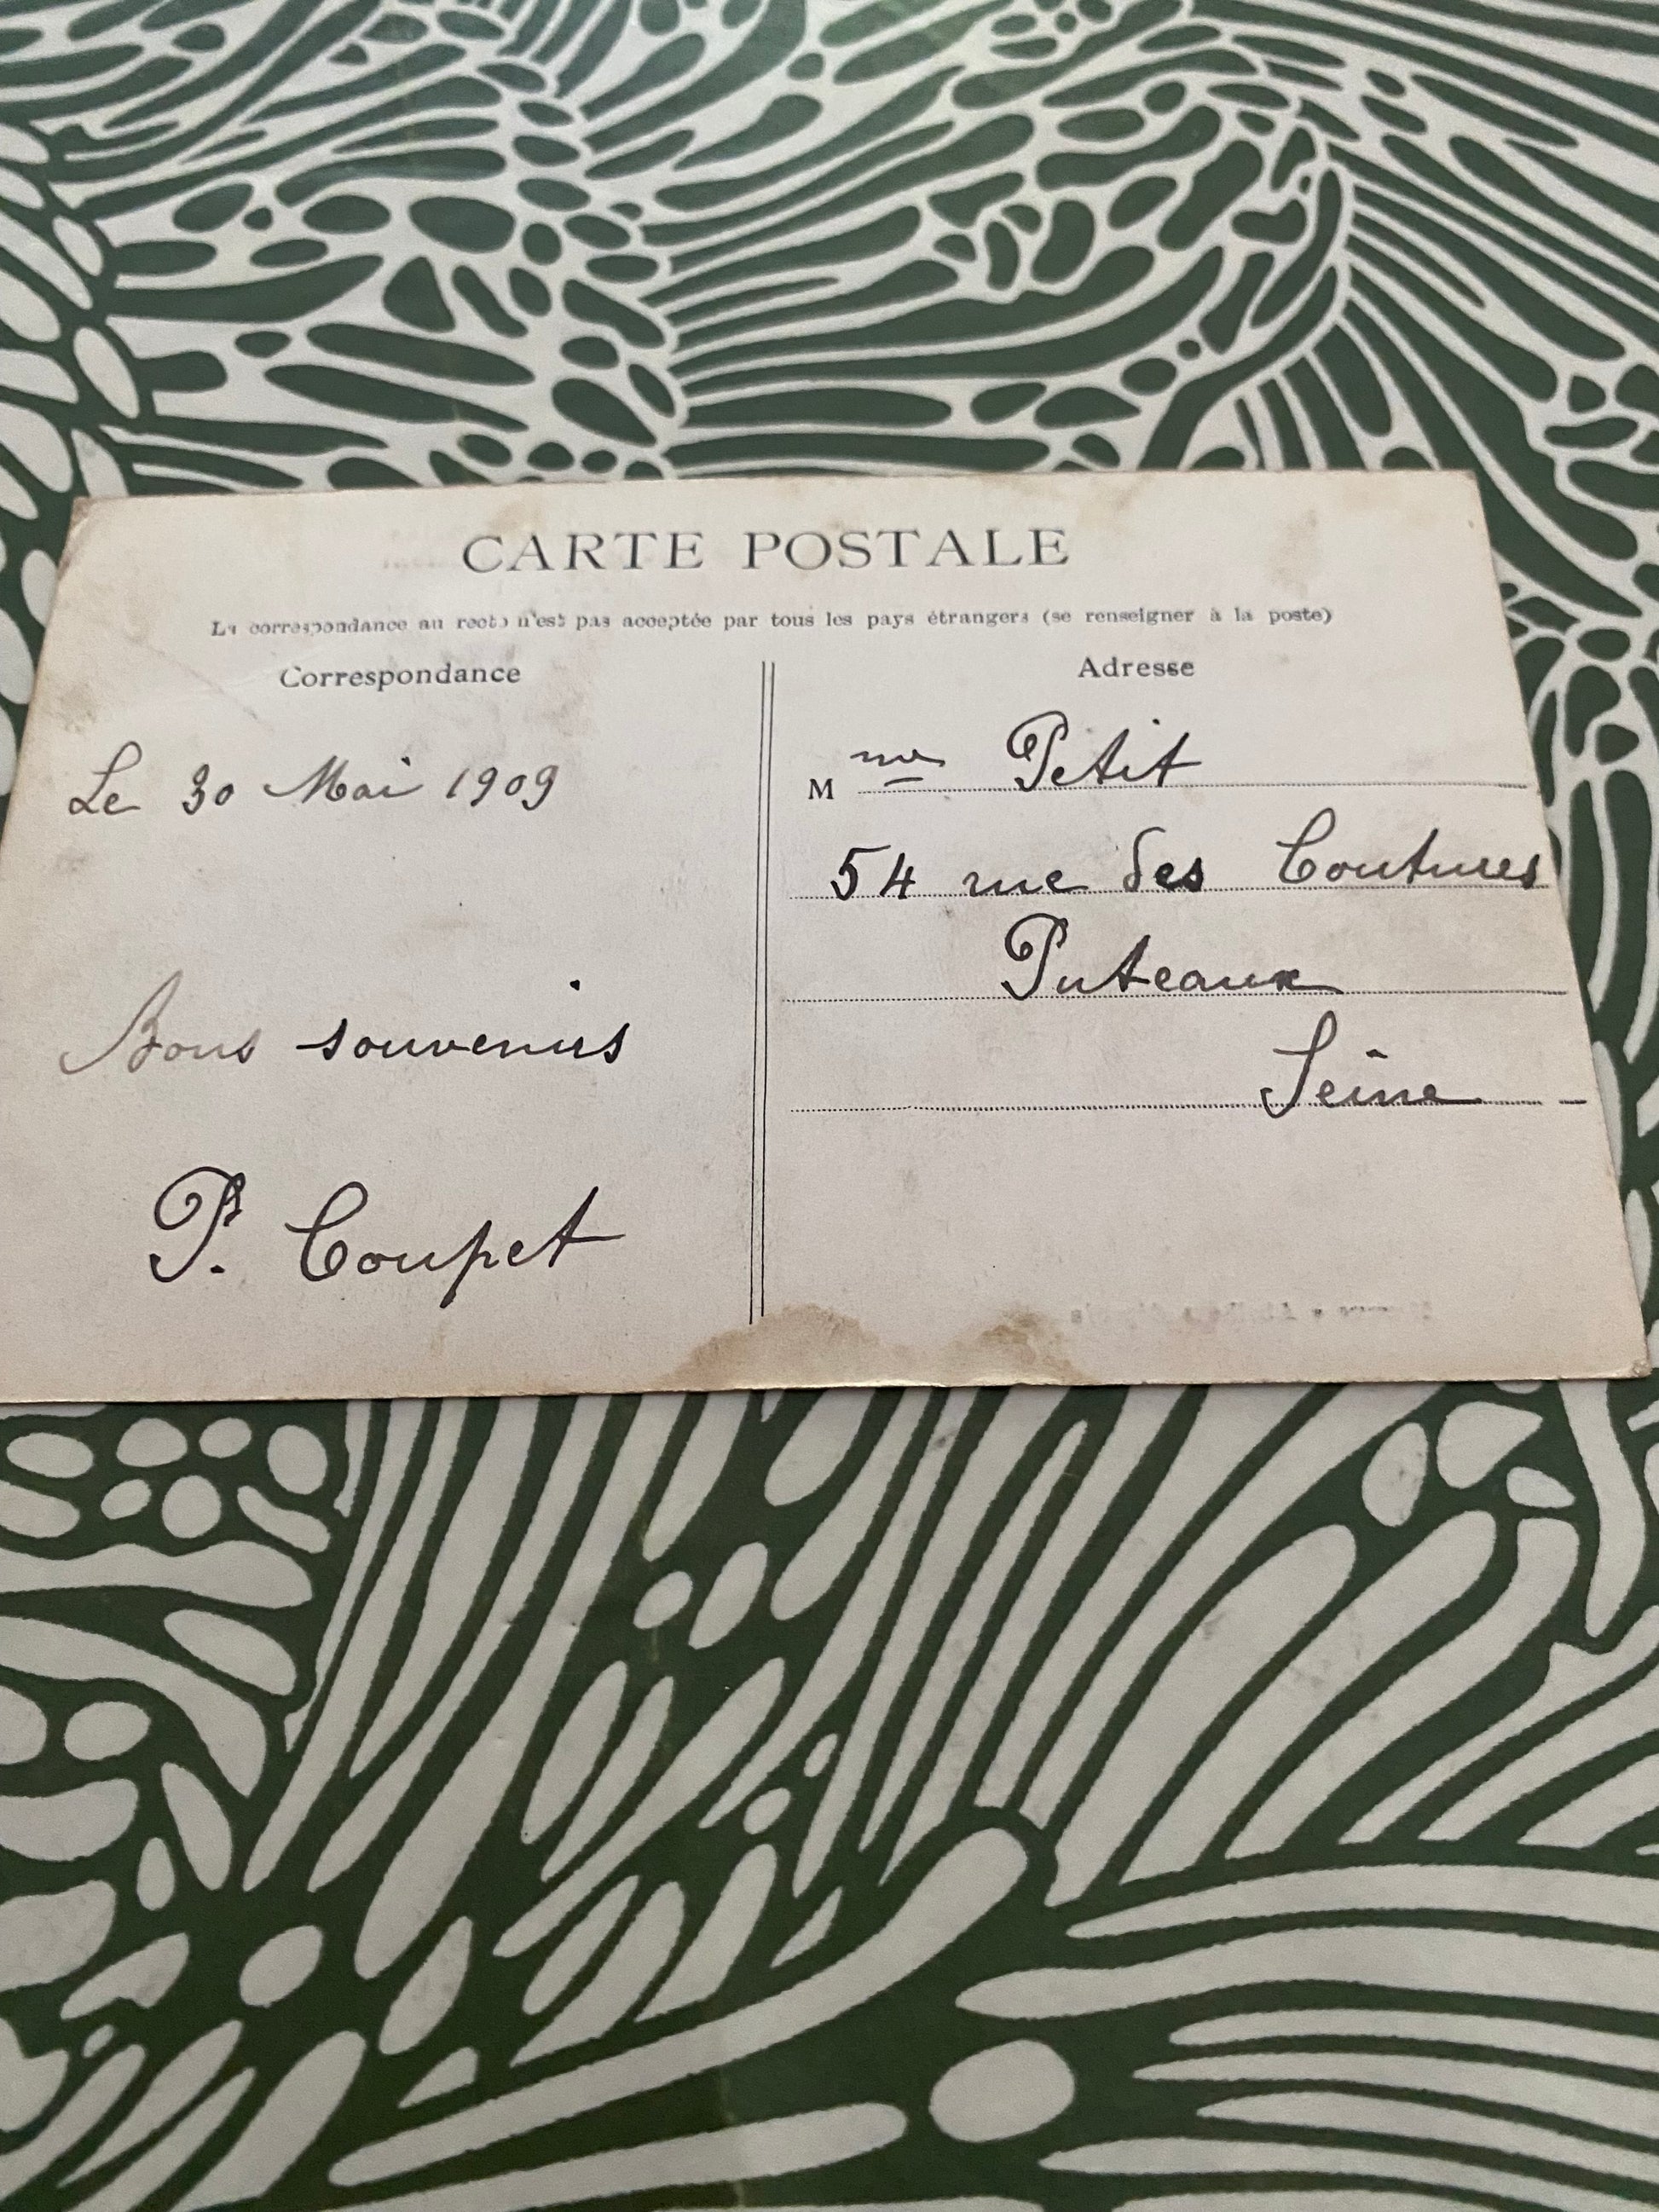 CARTE POSTALE
La correspondance au recto n'est pas acceptée par tous les pays étrangers (se renseigner à la poste)
Correspondance
Le 30 Mai 1909
Bons souvenirs
P. Coupet
Adresse
Mme Petit
54 rue des Coutures
Puteaux
Seine